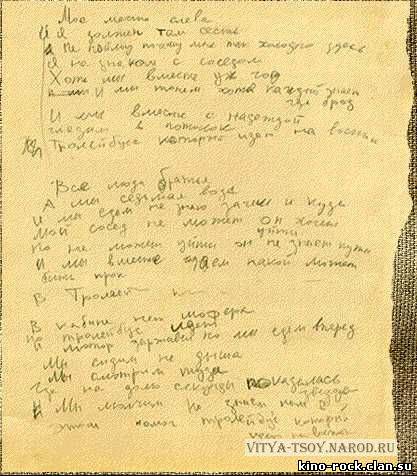 Мое место слева
И я должен там сесть
я Не пойму почему мне так холодно здесь
Я не знаком с соседом
Хоть мы вместе уж год
И мы тонем хотя каждый знает
где брод
И мы вместе с надеждой
глядим в потолок
Тролейбуса который идет на восток
Все люди братья
А мы седьмая вода
И мы едем не знаю зачем и куда
Мой сосед не может он хочет
уйти
Но не может уйти он не знает пути
И мы вместе гадаем какой может
быть прок
В Тролей
В кабине нет шофера
Но тролейбус идет
И мотор заржавел но мы едем вперед
Мы сидим не дыша
Мы смотрим туда
Где на долю секунды показалась
звезда
И Мы молчим но знаем нам в
этом помог тролейбус который
идет на восток
VITYA-TSOY.NAROD.RU
kino-rock.clan.su